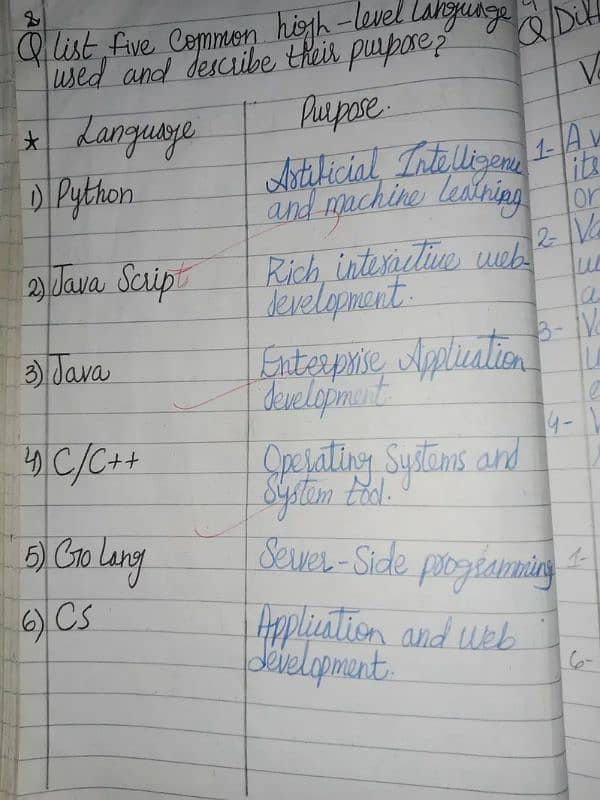 8
Q list five Common high-level language
used and describe their purpose?
* Language Purpose.
1) Python Artificial Intelligence
and machine learning
2) Java Script Rich interactive web-
development.
3) Java Enterprise Application
development.
4) C/C++ Operating Systems and
System tool.
5) Go Lang Server-Side programming
6) CS Application and web
development.
Q Diff
1- A
its
or
2- Va
a
3-
4-
1-
6-